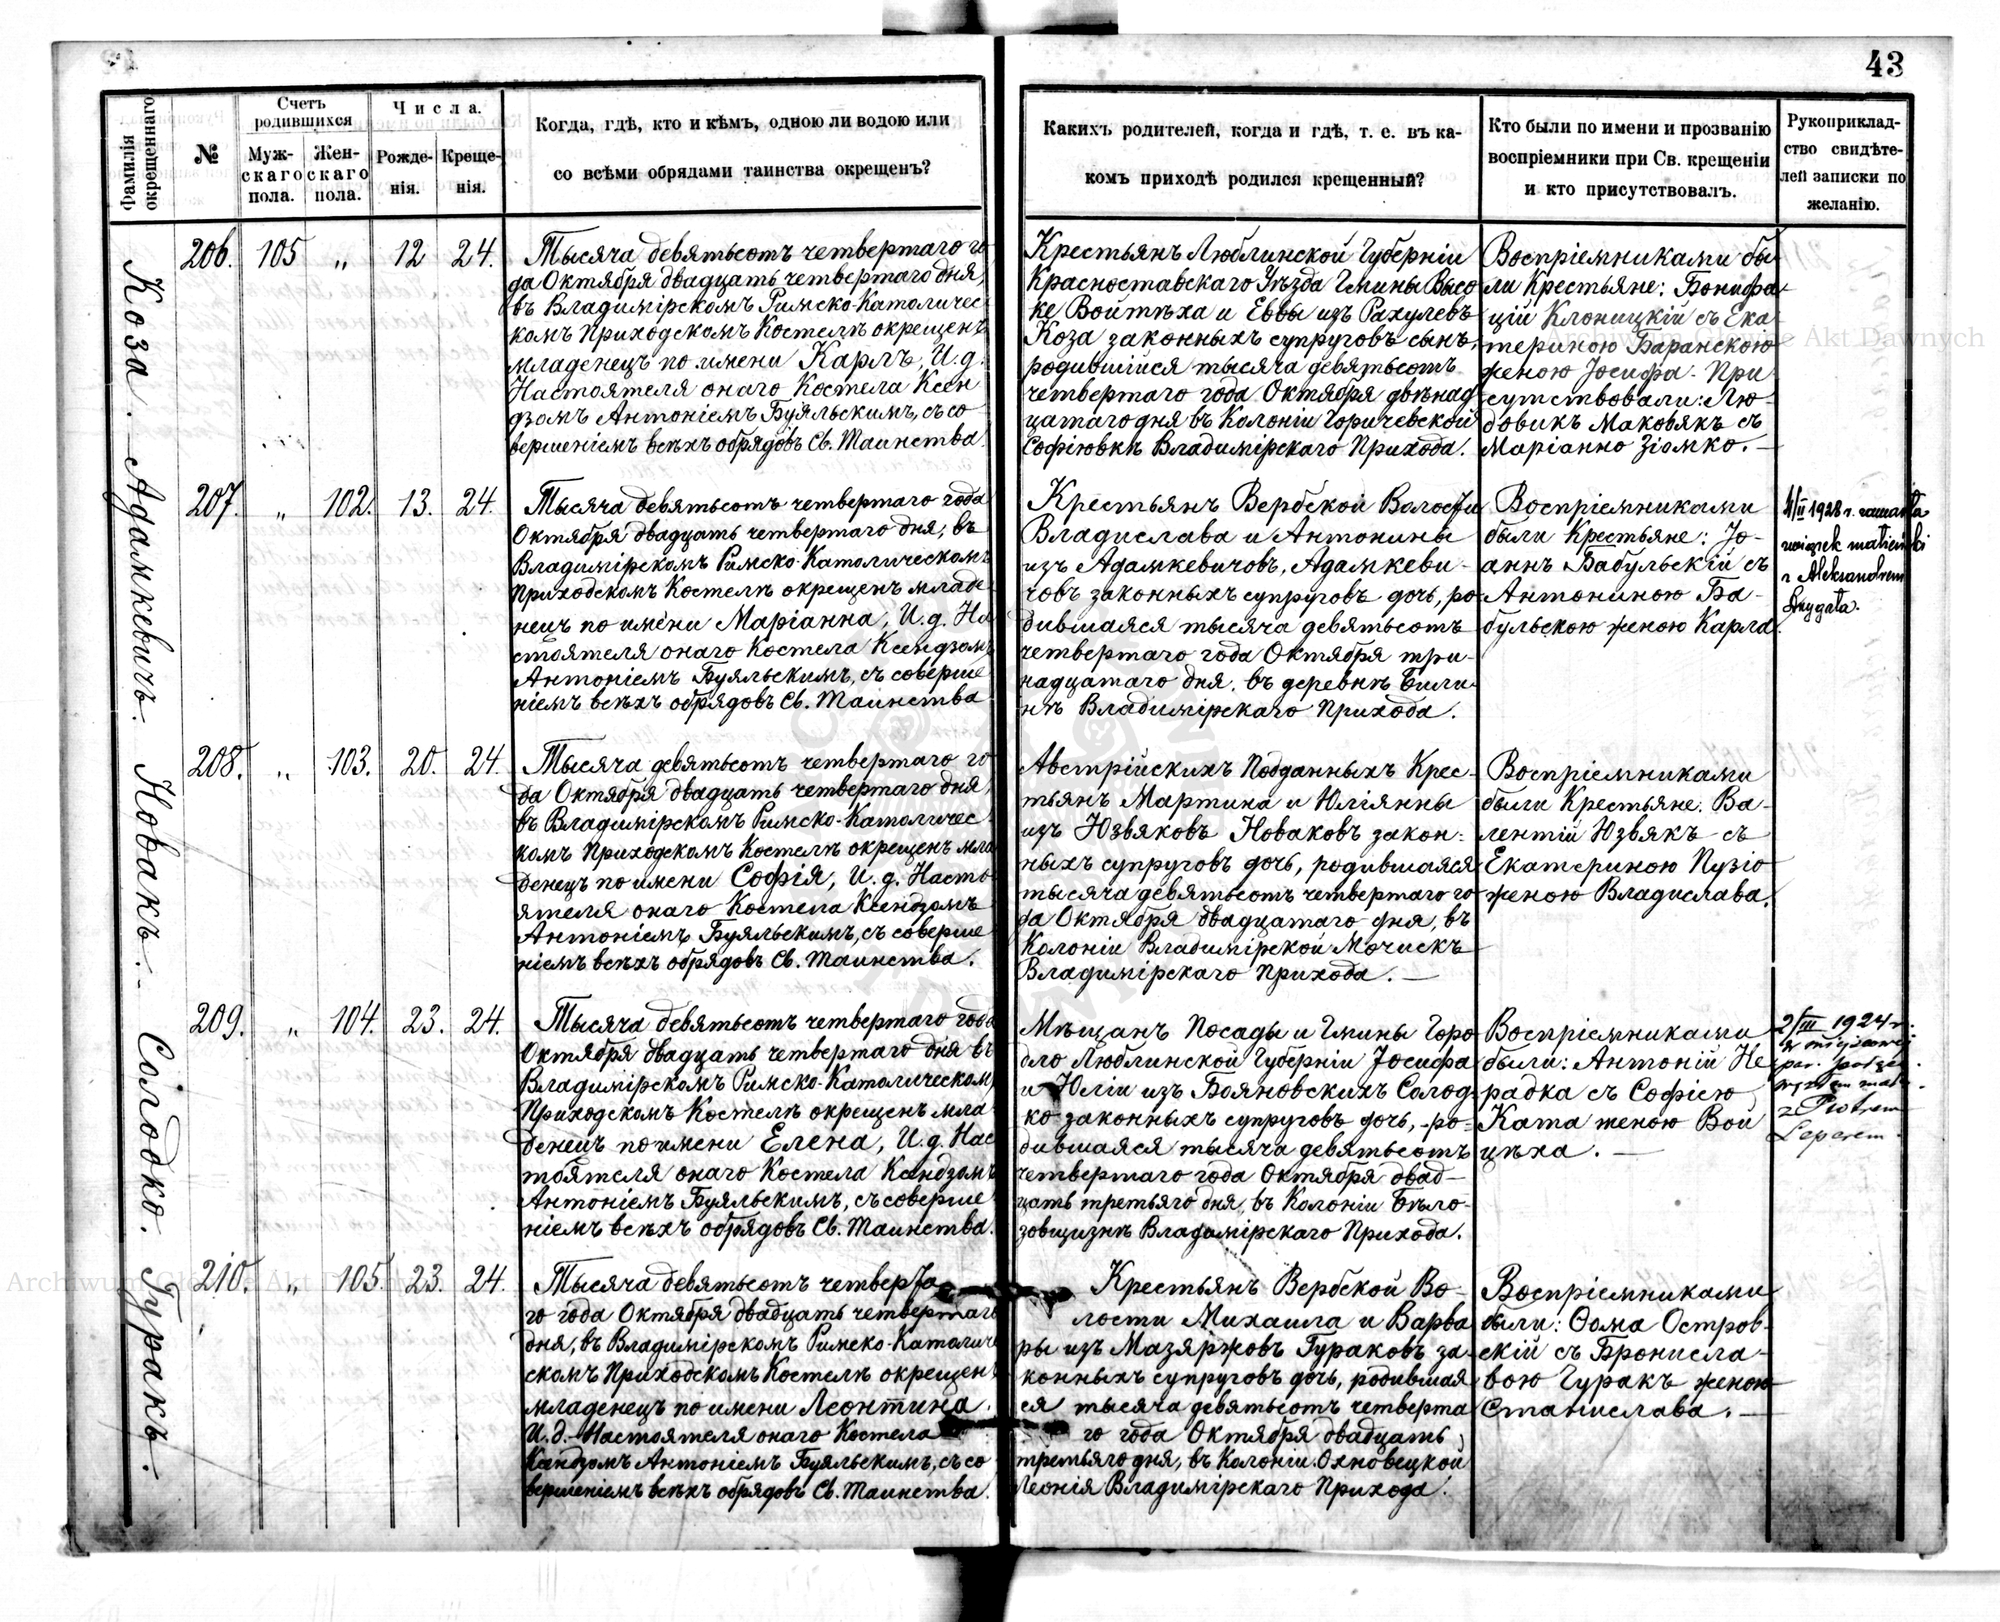 43
Фамилія
окрещеннаго.
№
Счетъ
родившихся
Муж-
скаго
пола.
Жен-
скаго
пола.
Числа.
Рожде-
нія.
Креще-
нія.
Когда, гдѣ, кто и кѣмъ, одною ли водою или
со всѣми обрядами таинства окрещенъ?
Какихъ родителей, когда и гдѣ, т. е. въ ка-
комъ приходѣ родился крещенный?
Кто были по имени и прозванію
воспріемники при Св. крещеніи
и кто присутствовалъ.
Рукоприклад-
ство свидѣте-
лей записки по
желанію.
Коза.
206. 105 „ 12 24.
Тысяча девятьсотъ четвертаго го
да Октября двадцать четвертаго дня,
въ Владимірскомъ Римско-Католичес
комъ Приходскомъ Костелѣ окрещенъ
младенецъ по имени Карлъ, И. д.
Настоятеля онаго Костела Ксен
дзомъ Антоніемъ Буяльскимъ, съ со
вершеніемъ всѣхъ обрядовъ Св. Таинства.
Крестьянъ Люблинской Губерніи
Красноставскаго Уѣзда Гмины Высо
ке Войтѣха и Еввы изъ Рахулевъ
Коза законныхъ супруговъ сынъ,
родившійся тысяча девятьсотъ
четвертаго года Октября двѣнад
цатаго дня въ Колоніи Горичевской
Софіювкѣ Владимірскаго Прихода.
Воспріемниками бы
ли Крестьяне: Бонифа-
цій Клоницкій съ Ека-
териною Баранскою
женою Іосифа. При
сутствовали: Лю-
довикъ Маковякъ съ
Маріанно Зіомко.
Адамкевичъ.
207. „ 102. 13. 24.
Тысяча девятьсотъ четвертаго года
Октября двадцать четвертаго дня, въ
Владимірскомъ Римско-Католическомъ
Приходскомъ Костелѣ окрещенъ младе
нецъ по имени Маріанна, И. д. На
стоятеля онаго Костела Ксендзомъ
Антоніемъ Буяльскимъ, съ соверше
ніемъ всѣхъ обрядовъ Св. Таинства
Крестьянъ Вербской Волости
Владислава и Антонины
изъ Адамкевичовъ, Адамкеви-
човъ законныхъ супруговъ дочь, ро
дившаяся тысяча девятьсотъ
четвертаго года Октября три-
надцатаго дня, въ деревнѣ Били-
нѣ Владимірскаго Прихода.
Воспріемниками
были Крестьяне: Іо-
аннъ Бабульскій съ
Антониною Ба-
бульскою женою Карла.
4/II 1928 r. zawarła
związek małżeński
z Aleksandrem
Новакъ.
208. „ 103. 20. 24.
Тысяча девятьсотъ четвертаго го
да Октября двадцать четвертаго дня,
въ Владимірскомъ Римско-Католичес
комъ Приходскомъ Костелѣ окрещенъ мла
денецъ по имени Софія, И. д. Насто
ятеля онаго Костела Ксендзомъ
Антоніемъ Буяльскимъ, съ соверше
ніемъ всѣхъ обрядовъ Св. Таинства.
Австрійскихъ Подданныхъ Крес-
тьянъ Мартина и Юліянны
изъ Юзвяковъ Новаковъ закон-
ныхъ супруговъ дочь, родившаяся
тысяча девятьсотъ четвертаго го-
да Октября двадцатаго дня, въ
Колоніи Владимірской Мочискъ
Владимірскаго Прихода.
Воспріемниками
были Крестьяне: Ва-
лентій Юзвякъ съ
Екатериною Пузіо
женою Владислава.
Солодко.
209. „ 104. 23. 24.
Тысяча девятьсотъ четвертаго года
Октября двадцать четвертаго дня въ
Владимірскомъ Римско-Католическомъ
Приходскомъ Костелѣ окрещенъ мла
денецъ по имени Елена, И. д. Нас
тоятеля онаго Костела Ксендзомъ
Антоніемъ Буяльскимъ, съ соверше
ніемъ всѣхъ обрядовъ Св. Таинства.
Мѣщанъ Посады и Гмины Горо
дло Люблинской Губерніи Іосифа
и Юліи изъ Бояновскихъ Солод-
ко законныхъ супруговъ дочь, ро-
дившаяся тысяча девятьсотъ
четвертаго года Октября двад-
цать третьяго дня, въ Колоніи Бѣло-
зовщизнѣ Владимірскаго Прихода.
Воспріемниками
были: Антоній Не
радка съ Софіею
Ката женою Вой
цѣха.
2/III 1924 r.
z Piotrem
Leperem.
Гуракъ.
210. „ 105. 23. 24.
Тысяча девятьсотъ четверта
го года Октября двадцать четвертаго
дня, въ Владимірскомъ Римско-Католиче
скомъ Приходскомъ Костелѣ окрещенъ
младенецъ по имени Леонтина.
И. д. Настоятеля онаго Костела
Ксендзомъ Антоніемъ Буяльскимъ, съ со
вершеніемъ всѣхъ обрядовъ Св. Таинства.
Крестьянъ Вербской Во-
лости Михаила и Варва
ры изъ Мазяржовъ Гураковъ за-
конныхъ супруговъ дочь, родившая
ся тысяча девятьсотъ четверта
го года Октября двадцать
третьяго дня, въ Колоніи Охновецкой
Леонія Владимірскаго Прихода.
Воспріемниками
были: Ѳома Остров-
скій съ Бронисла-
вою Гуракъ женою
Станислава.